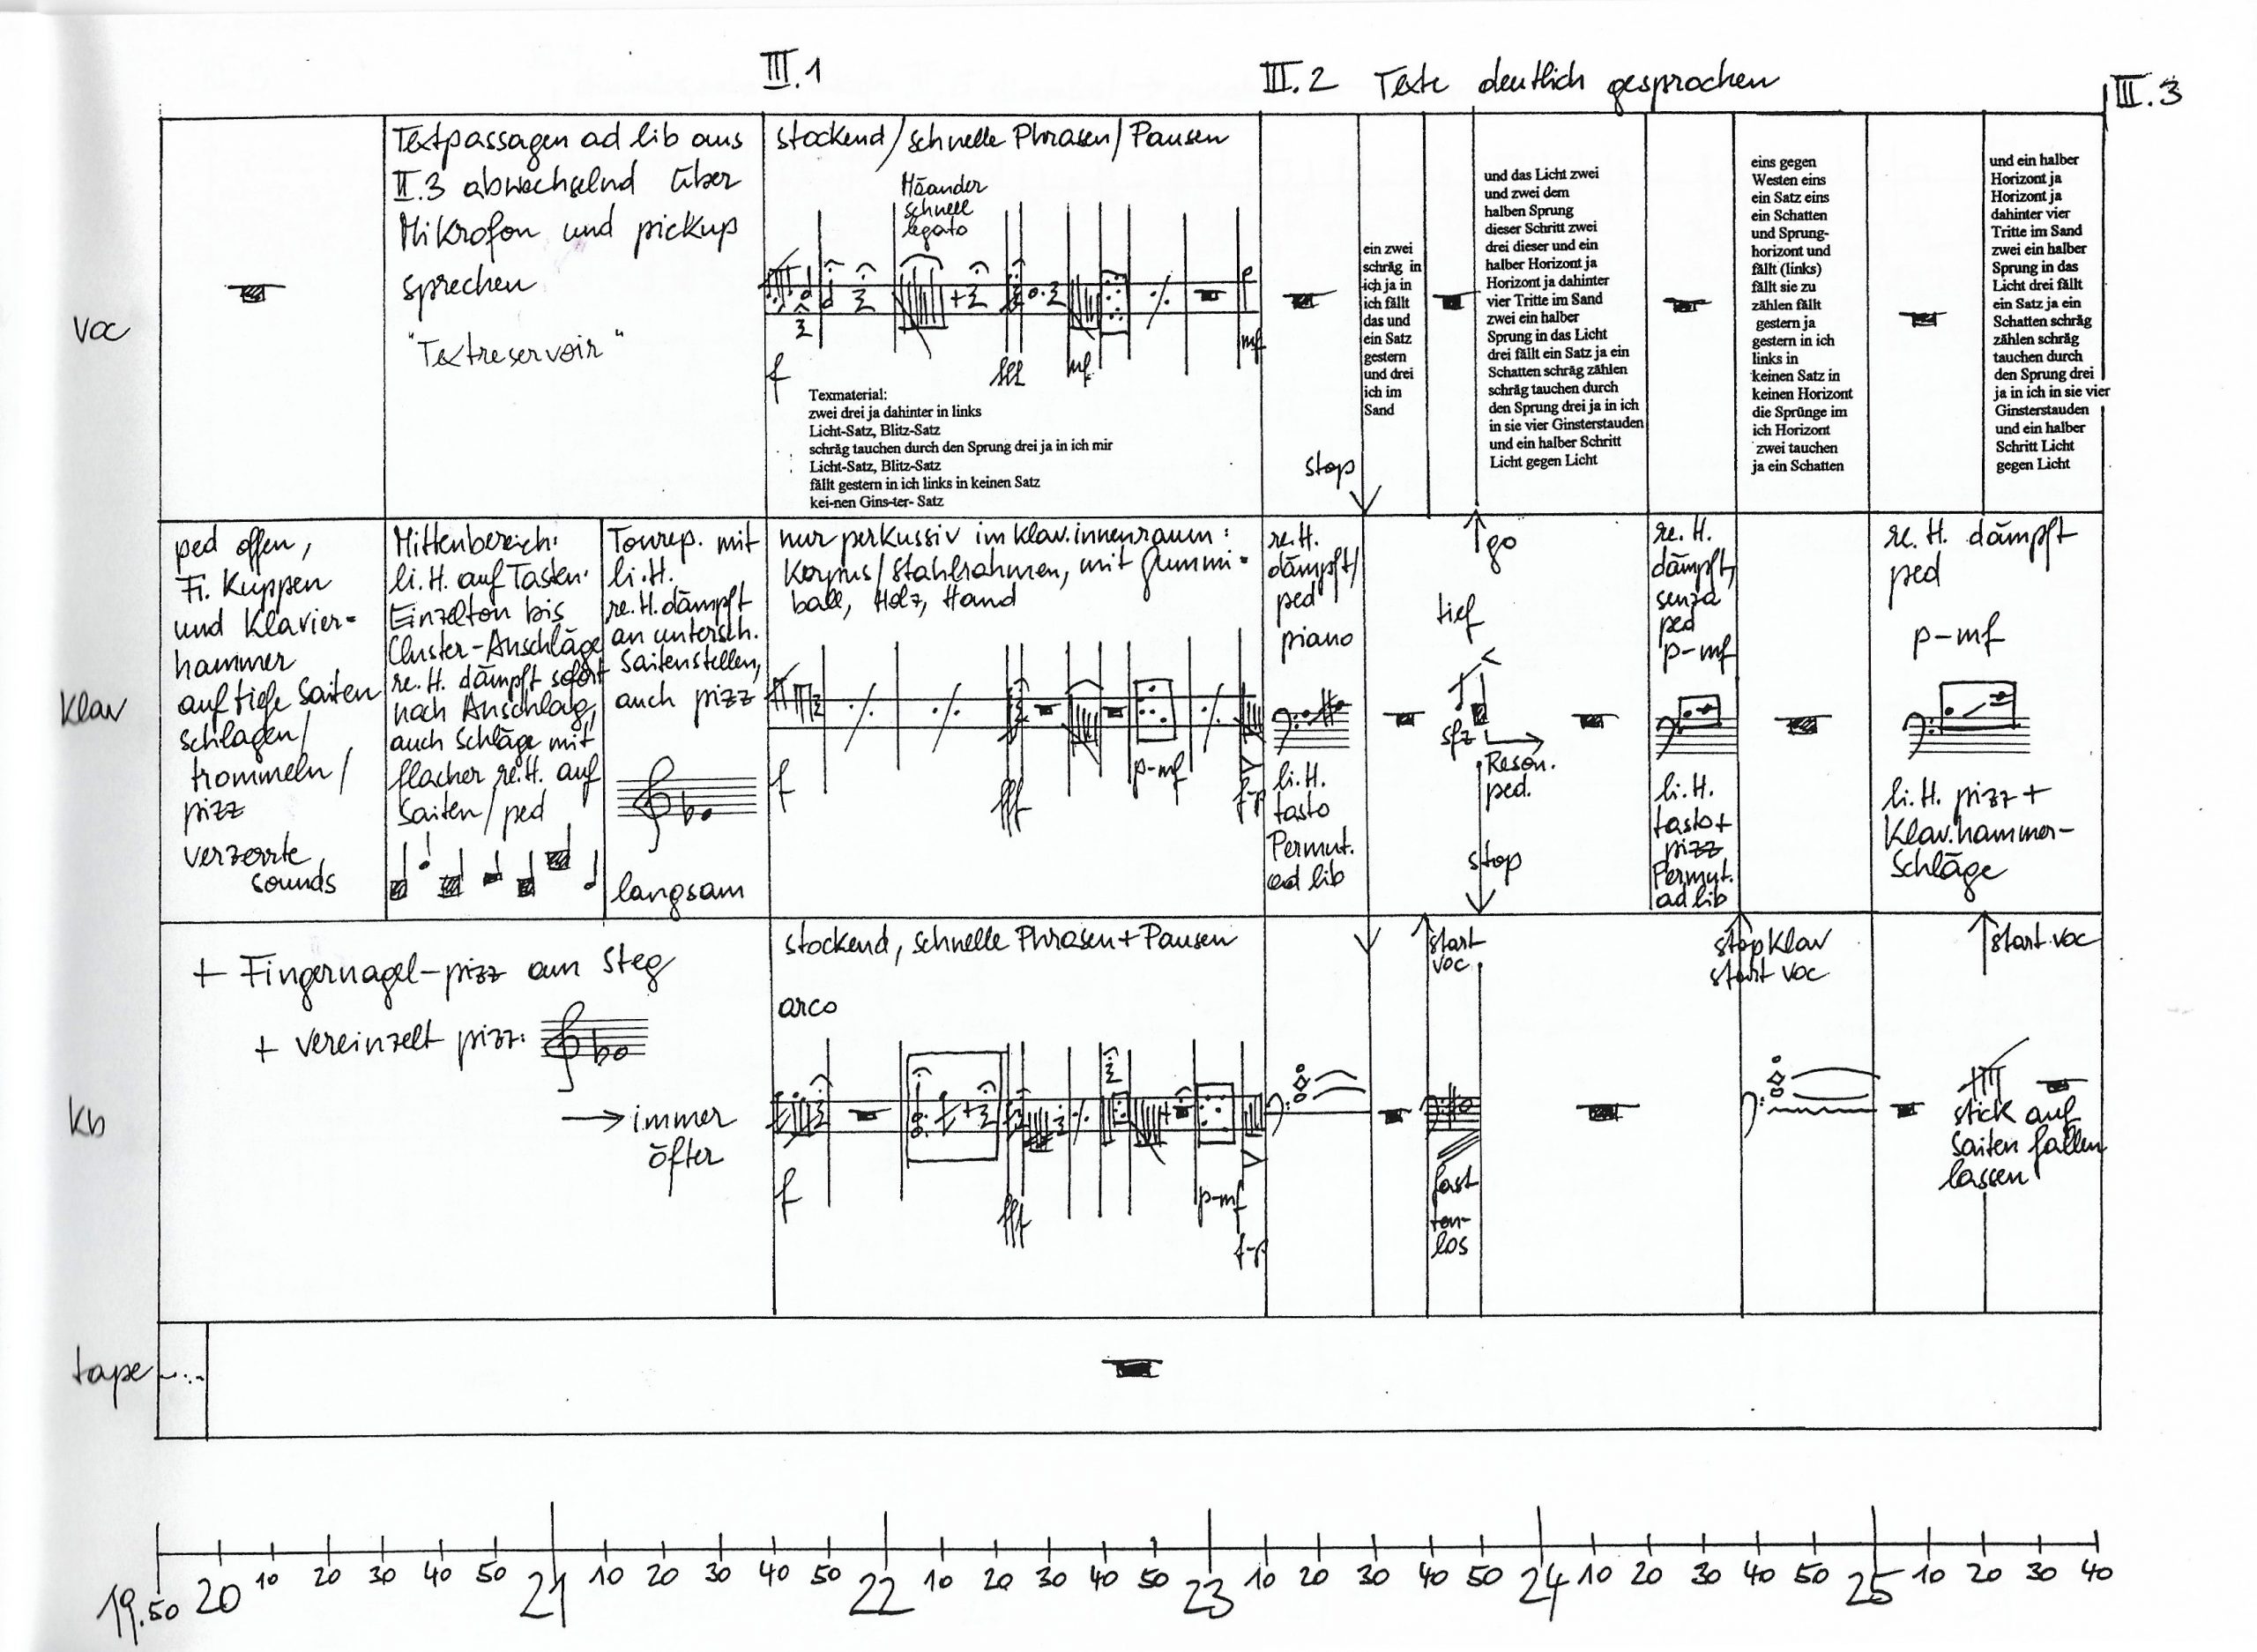 III.1
III.2 Texte deutlich gesprochen
III.3
voc
Textpassagen ad lib aus
II.3 abwechselnd über
Mikrofon und pickup
sprechen
"Textreservoir"
stockend/schnelle Phrasen/Pausen
Mäander
schnell
legato
f
fff
mf
mf
Texmaterial:
zwei drei ja dahinter in links
Licht-Satz, Blitz-Satz
schräg tauchen durch den Sprung drei ja in ich mir
Licht-Satz, Blitz-Satz
fällt gestern in ich links in keinen Satz
kei-nen Gins-ter- Satz
stop
ein zwei
schräg in
ich ja in
ich fällt
das und
ein Satz
gestern
und drei
ich im
Sand
und das Licht zwei
und zwei dem
halben Sprung
dieser Schritt zwei
drei dieser und ein
halber Horizont ja
Horizont ja dahinter
vier Tritte im Sand
zwei ein halber
Sprung in das Licht
drei fällt ein Satz ja ein
Schatten schräg zählen
schräg tauchen durch
den Sprung drei ja in ich
in sie vier Ginsterstauden
und ein halber Schritt
Licht gegen Licht
eins gegen
Westen eins
ein Satz eins
ein Schatten
und Sprung-
horizont und
fällt (links)
fällt sie zu
zählen fällt
gestern ja
gestern in ich
links in
keinen Satz in
keinen Horizont
die Sprünge im
ich Horizont
zwei tauchen
ja ein Schatten
und ein halber
Horizont ja
Horizont ja
dahinter vier
Tritte im Sand
zwei ein halber
Sprung in das
Licht drei fällt
ein Satz ja ein
Schatten schräg
zählen schräg
tauchen durch
den Sprung drei
ja in ich in sie vier
Ginsterstauden
und ein halber
Schritt Licht
gegen Licht
Klav
ped offen,
Fi. Kuppen
und Klavier-
hammer
auf tiefe Saiten
schlagen/
trommeln/
pizz
verzerrte
sounds
Mittenbereich:
li. H. auf Tasten:
Einzelton bis
Cluster-Anschläge
re. H. dämpft sofort
nach Anschlag,
auch Schläge mit
flacher re. H. auf
Saiten/ped
Tonrep. mit
li. H.
re. H. dämpft
an untersch.
Saitenstellen,
auch pizz
langsam
nur perkussiv im Klav.innenraum:
Korpus/Stahlrahmen, mit Gummi-
ball, Holz, Hand
f
fff
p-mf
f-p
re. H.
dämpft/
ped
piano
li. H.
tasto
Permut.
ad lib
go
tief
sfz
Reson.
ped.
stop
re. H.
dämpft,
senza
ped
p-mf
li. H.
tasto+
pizz
Permut.
ad lib
re. H. dämpft
ped
p-mf
li. H. pizz +
Klav.hammer-
Schläge
kb
+ Fingernagel-pizz am Steg
+ vereinzelt pizz:
immer
öfter
stockend, schnelle Phrasen + Pausen
arco
f
fff
p-mf
f-p
start
voc
fast
ton-
los
stop Klav
start voc
start voc
stick auf
Saiten fallen
lassen
tape
19.50 20 10 20 30 40 50 21 10 20 30 40 50 22 10 20 30 40 50 23 10 20 30 40 50 24 10 20 30 40 50 25 10 20 30 40